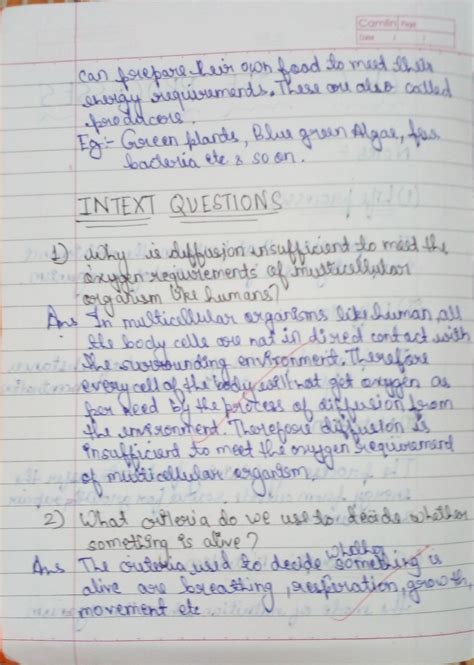 Camlin Page
Date / /
can prepare their own food to meet their
energy requirements. These are also called
producere.
Eg:- Green plants, Blue green Algae, few
bacteria etc & so on.
INTEXT QUESTIONS
1) Why is diffusion insufficient to meet the
oxygen requirements of multicellular
organism like humans?
Ans In multicellular organisms like human, all
the body cells are not in direct contact with
the surrounding environment. Therefore
every cell of the body will not get oxygen as
per need by the process of diffusion from
the environment. Therefore diffusion is
insufficient to meet the oxygen requirement
of multicellular organism.
2) What criteria do we use to decide whether
something is alive?
Ans The criteria used to decide whether something is
alive are breathing, respiration, growth,
movement etc